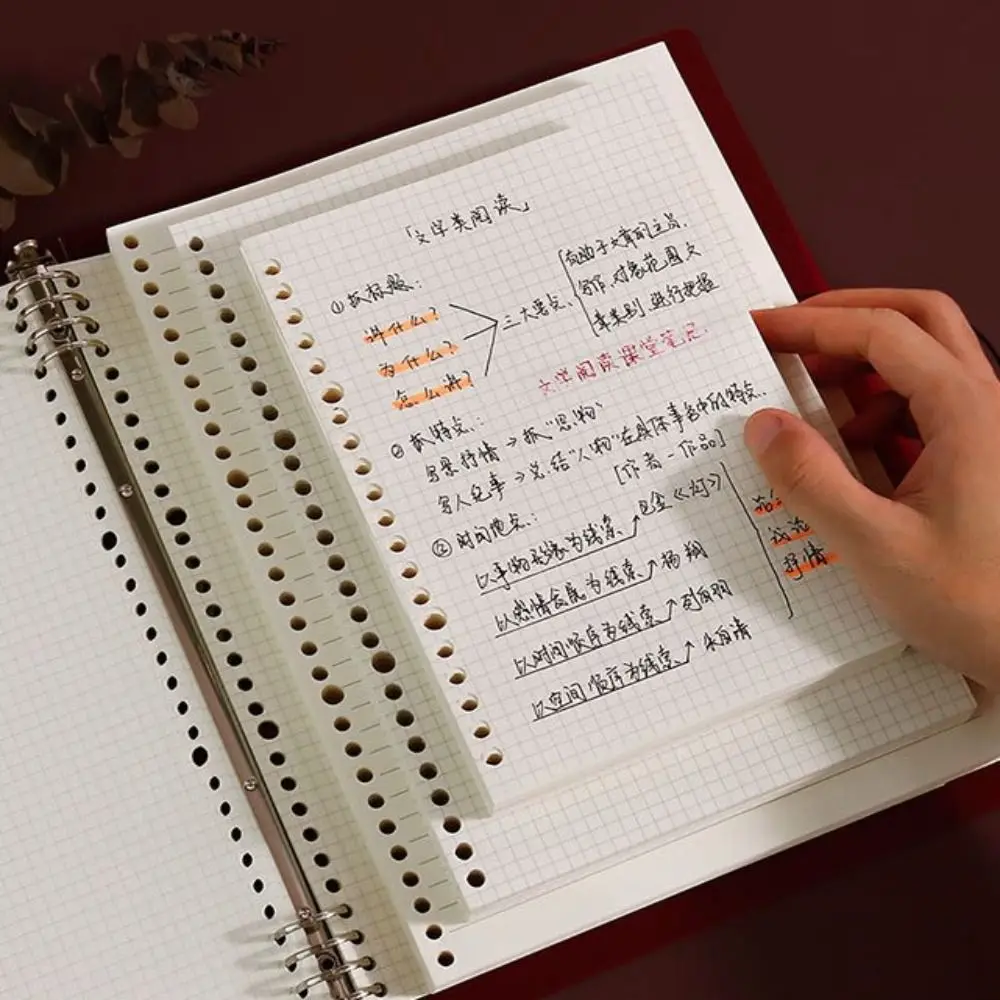 「文学类阅读」
①抓标题:
讲什么?
为什么?
怎么讲?
三大要点
有助于文章的立意.
写作.对象范围文
章类别.进行把握
文学阅读课堂笔记.
② 抓特点.:
写景抒情→抓“景物”
写人记事→总结“人物”在具体事件中的特点..
[作者-作品]
③ 时间地点.:
以事物形象为线索↗巴金《灯》
以感情发展为线索↗杨朔
以时间顺序为线索↗刘白羽
以空间顺序为线索↗朱自清
议论
抒情